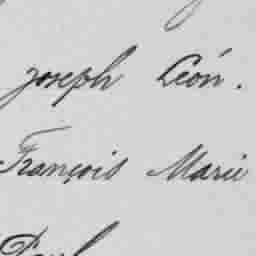 Joseph Léon.
François Marie
Paul